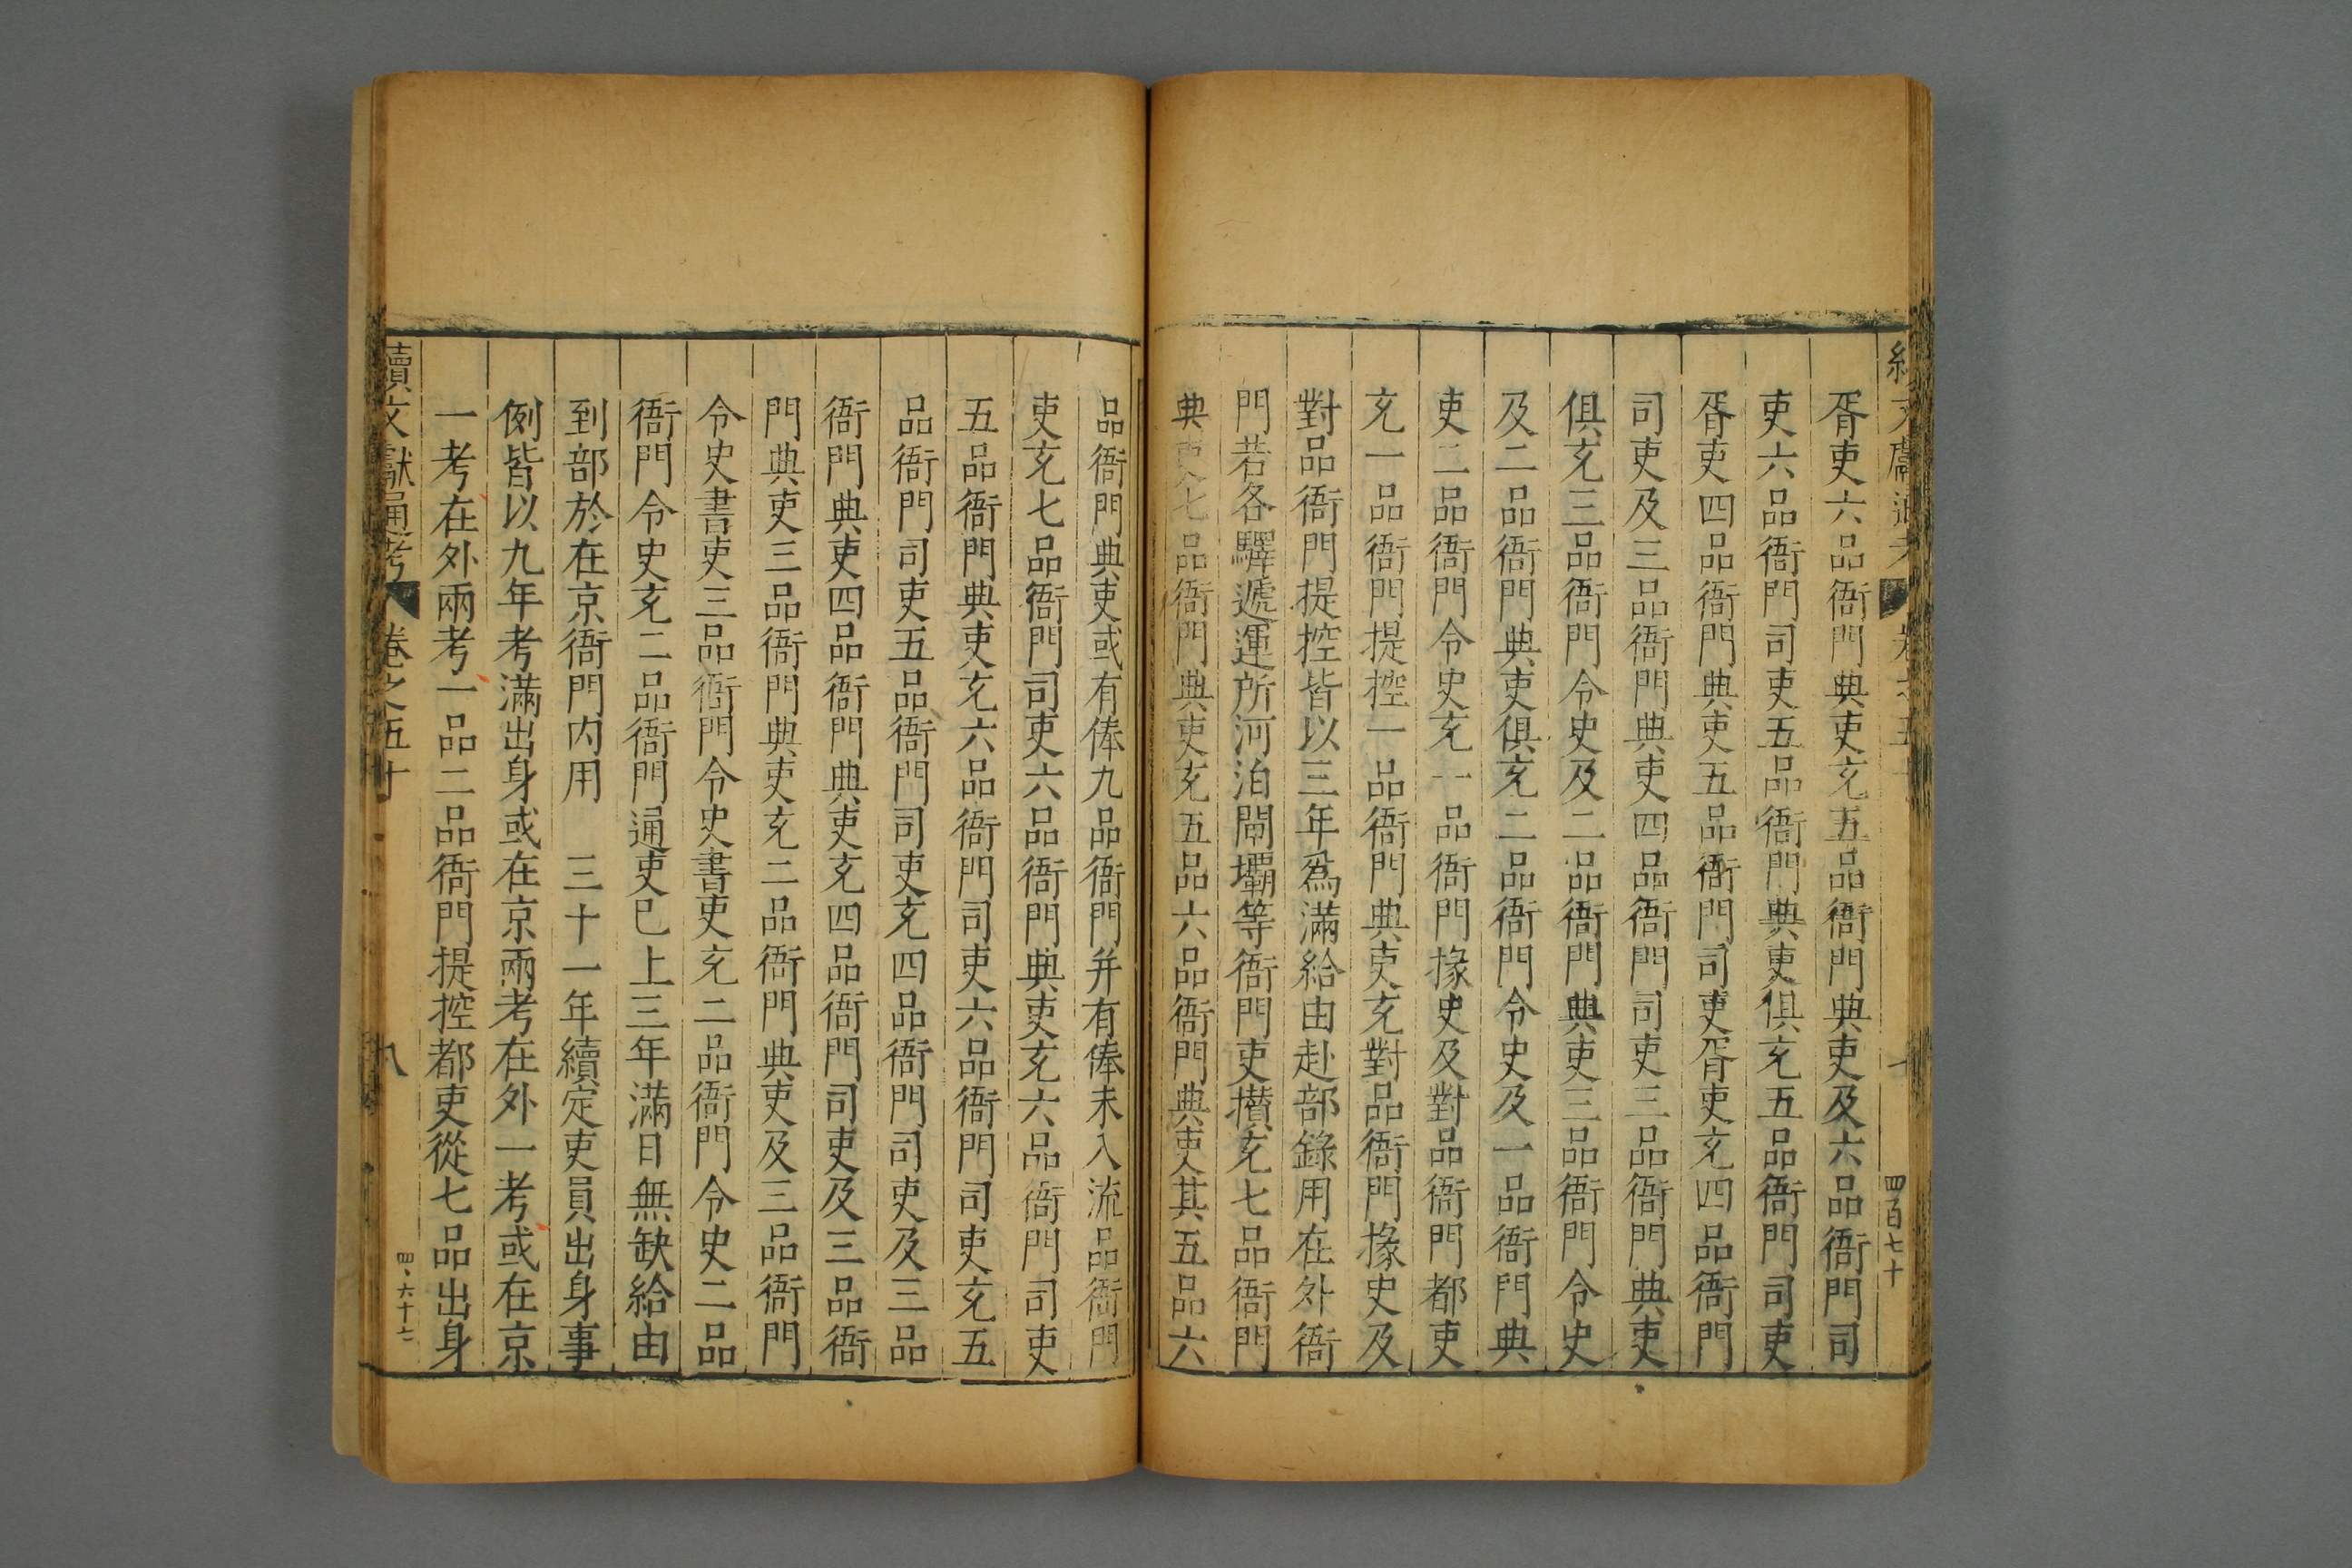 續文獻通考 卷之五十 七 四百七十
胥吏六品衙門典吏充五品衙門典吏及六品衙門司
吏六品衙門司吏五品衙門典吏俱充五品衙門司吏
胥吏四品衙門典吏五品衙門司吏胥吏充四品衙門
司吏及三品衙門典吏四品衙門司吏三品衙門典吏
俱充三品衙門令史及二品衙門典吏三品衙門令史
及二品衙門典吏俱充二品衙門令史及一品衙門典
吏二品衙門令史充一品衙門掾史及對品衙門都吏
充一品衙門提控一品衙門典吏充對品衙門掾史及
對品衙門提控皆以三年爲滿給由赴部錄用在外衙
門若各驛遞運所河泊閘壩等衙門吏攅充七品衙門
典吏七品衙門典吏充五品六品衙門典吏其五品六
品衙門典吏或有俸九品衙門并有俸未入流品衙門
吏充七品衙門司吏六品衙門典吏充六品衙門司吏
五品衙門典吏充六品衙門司吏六品衙門司吏充五
品衙門司吏五品衙門司吏充四品衙門司吏及三品
衙門典吏四品衙門典吏充四品衙門司吏及三品衙
門典吏三品衙門典吏充二品衙門典吏及三品衙門
令史書吏三品衙門令史書吏充二品衙門令史二品
衙門令史充二品衙門通吏已上三年滿日無缺給由
到部於在京衙門内用 三十一年續定吏員出身事
例皆以九年考滿出身或在京兩考在外一考或在京
一考在外兩考一品二品衙門提控都吏從七品出身
續文獻通考 卷之五十 八 六十七